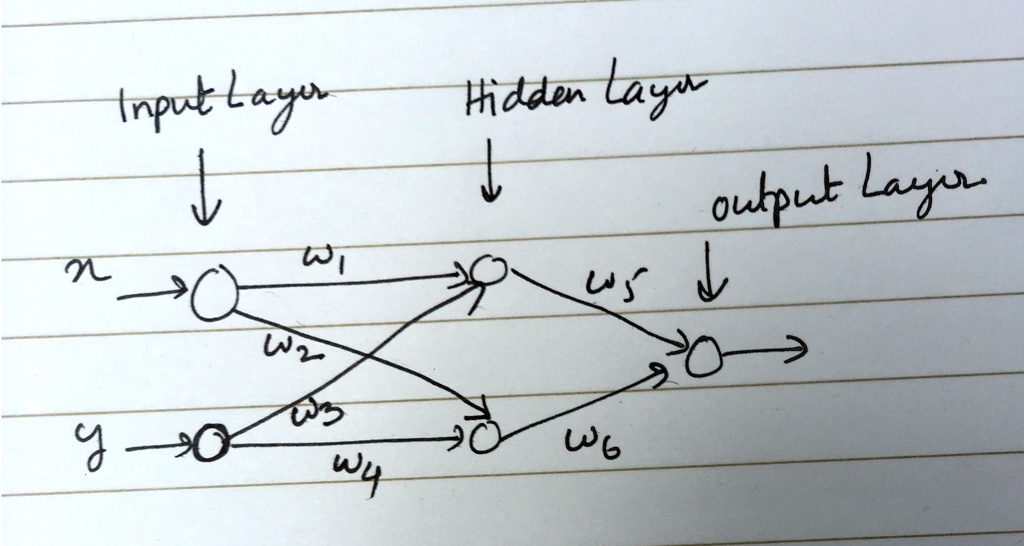 Input Layer
Hidden Layer
output Layer
x
w1
w5
w2
w3
y
w4
w6